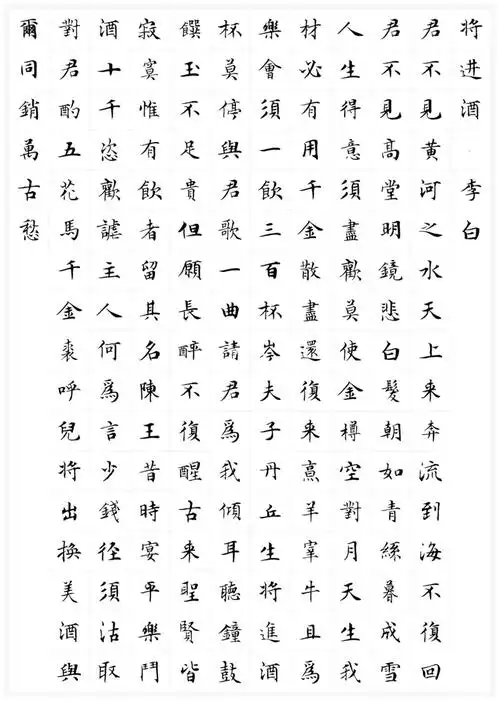 将进酒 李白
君不見黄河之水天上来奔流到海不復回
君不見高堂明鏡悲白髮朝如青絲暮成雪
人生得意須盡歡莫使金樽空對月天生我
材必有用千金散盡還復来烹羊宰牛且爲
樂會須一飲三百杯岑夫子丹丘生将進酒
杯莫停與君歌一曲請君爲我傾耳聽鐘鼓
饌玉不足貴但願長醉不復醒古来聖賢皆
寂寞惟有飲者留其名陳王昔時宴平樂鬥
酒十千恣歡謔主人何爲言少錢径須沽取
對君酌五花馬千金裘呼兒将出換美酒與
爾同銷萬古愁